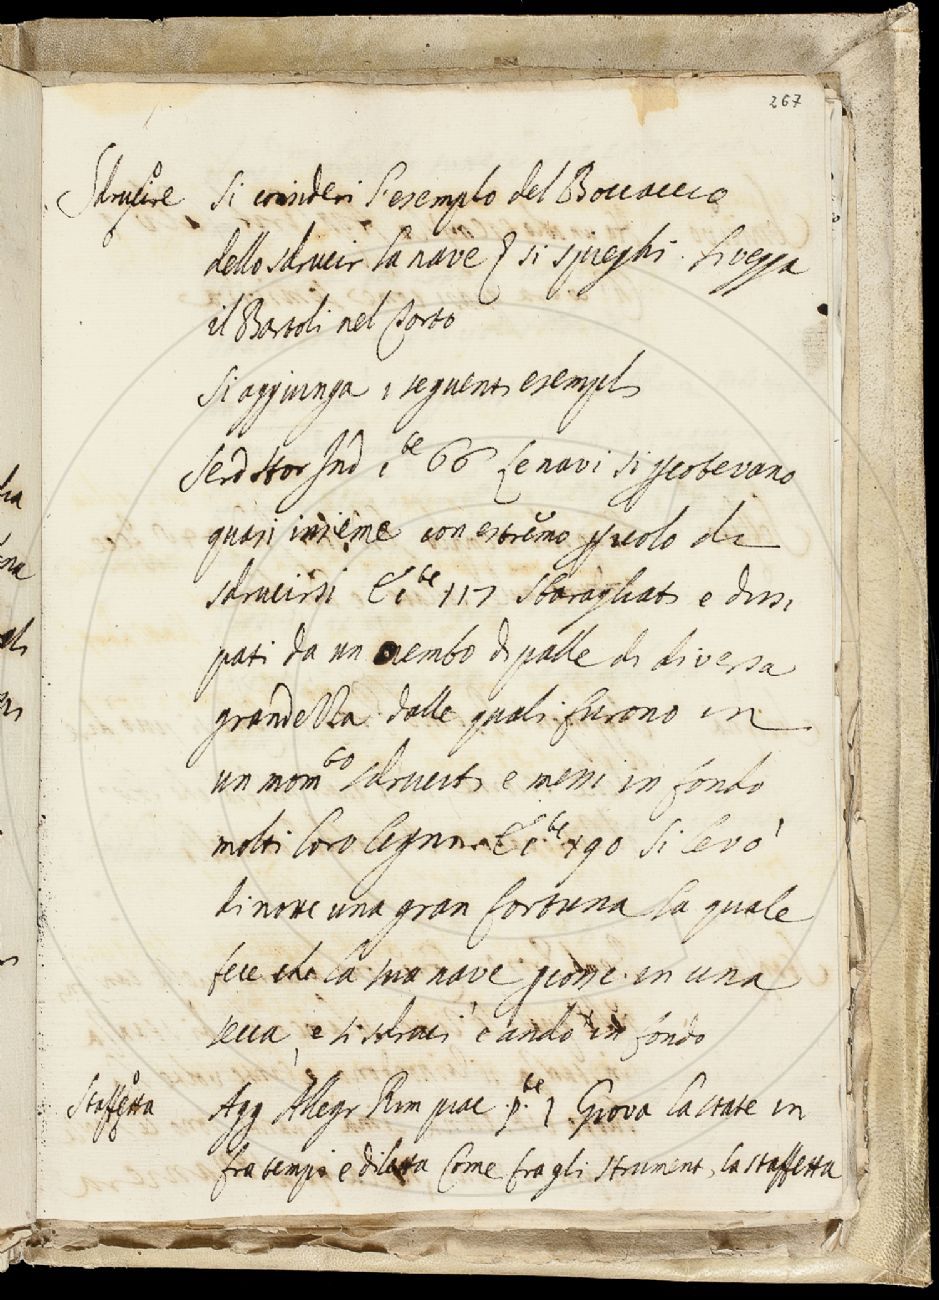 267
Sdrucire Si consideri l'esempio del Boccaccio
dello sdrucir la nave e si spieghi. Si vegga
il Bartoli nel Torto
Si aggiunga i seguenti esempli
Serd Stor Ind c.te 66 Le navi si percotevano
quasi insieme con estremo pericolo di
sdrucirsi E c.te 117 Sbaragliati e dissi
pati da un nembo di palle di diversa
grandezza dalle quali furono in
un mom.to sdruciti e messi in fondo
molti loro legni. E c.te 190 Si levò
di notte una gran fortuna la quale
fece che la sua nave in una
secca, e si sdrucì e andò in fondo
Staffetta Agg Allegr Rim piac p.te 1. Giova la state in
fra tempi e diletta Come fra gli strumenti la staffetta